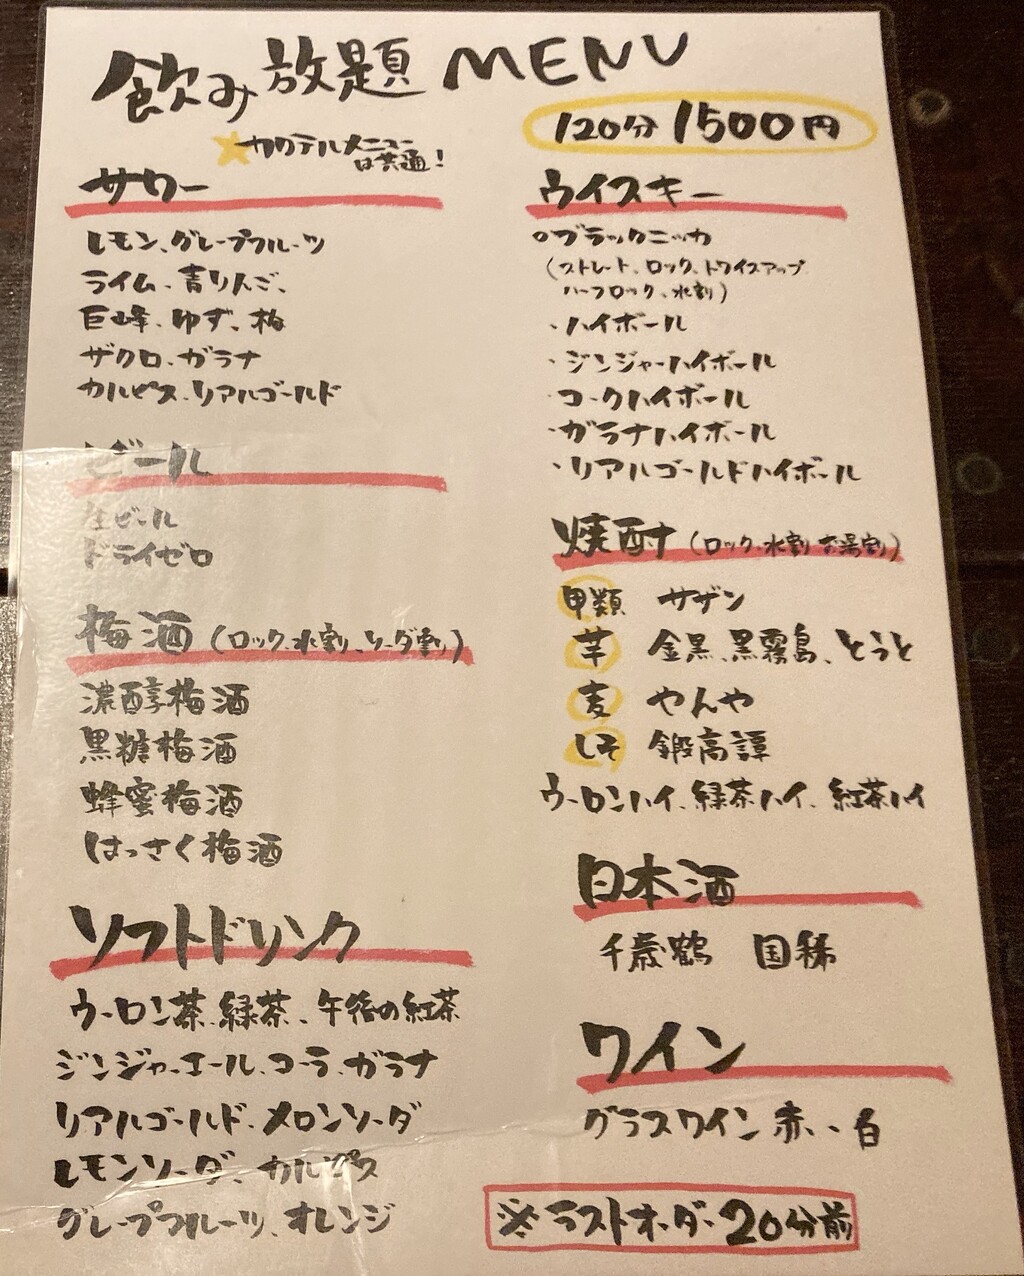 飲み放題 MENU
120分 1500円
★カクテルメニューは共通!
サワー
レモン、グレープフルーツ
ライム、青りんご、
巨峰、ゆず、梅
ザクロ、ガラナ
カルピス、リアルゴールド
ビール
生ビール
ドライゼロ
梅酒(ロック、水割、ソーダ割)
濃醇梅酒
黒糖梅酒
蜂蜜梅酒
はっさく梅酒
ソフトドリンク
ウーロン茶、緑茶、午後の紅茶
ジンジャーエール、コーラ、ガラナ
リアルゴールド、メロンソーダ
レモンソーダ、カルピス
グレープフルーツ、オレンジ
ウイスキー
○ブラックニッカ
(ストレート、ロック、トワイスアップ
ハーフロック、水割)
・ハイボール
・ジンジャーハイボール
・コークハイボール
・ガラナハイボール
・リアルゴールドハイボール
焼酎(ロック、水割、お湯割)
甲類 サザン
芋 金黒、黒霧島、とうと
麦 やんや
しそ 鍛高譚
ウーロンハイ、緑茶ハイ、紅茶ハイ
日本酒
千歳鶴 国稀
ワイン
グラスワイン 赤、白
※ラストオーダー20分前